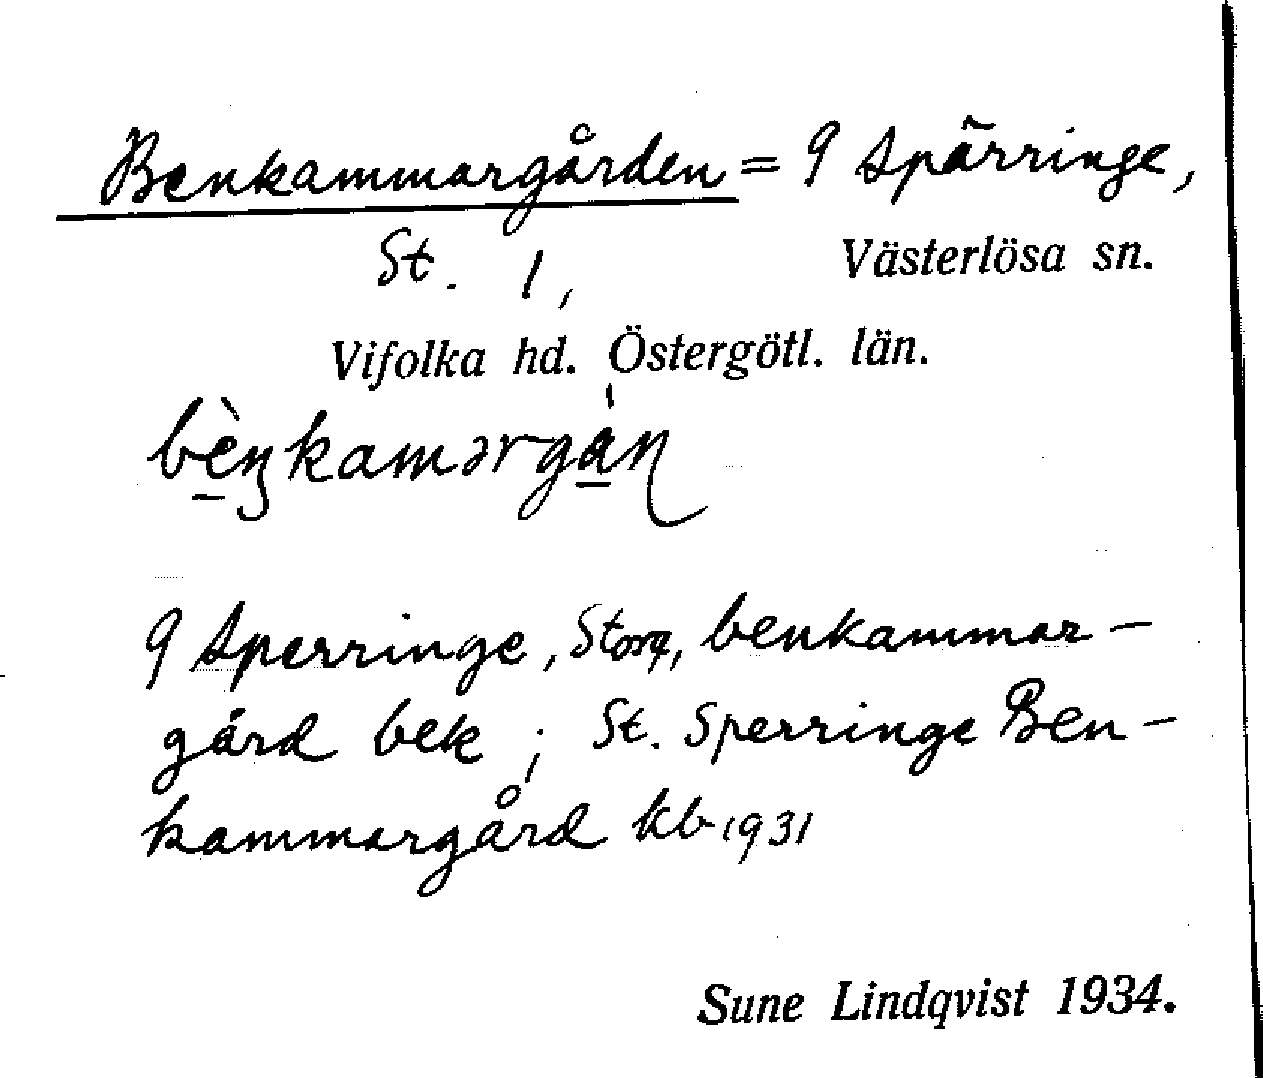 Benkammargården = 9 Spärringe,
St. 1, Västerlösa sn.
Vifolka hd. Östergötl. län.
bèŋkamərgàɳ
9 Sperringe, Storg, benkammar-
gård bek ; St. Sperringe Ben-
kammargård kb 1931
Sune Lindqvist 1934.